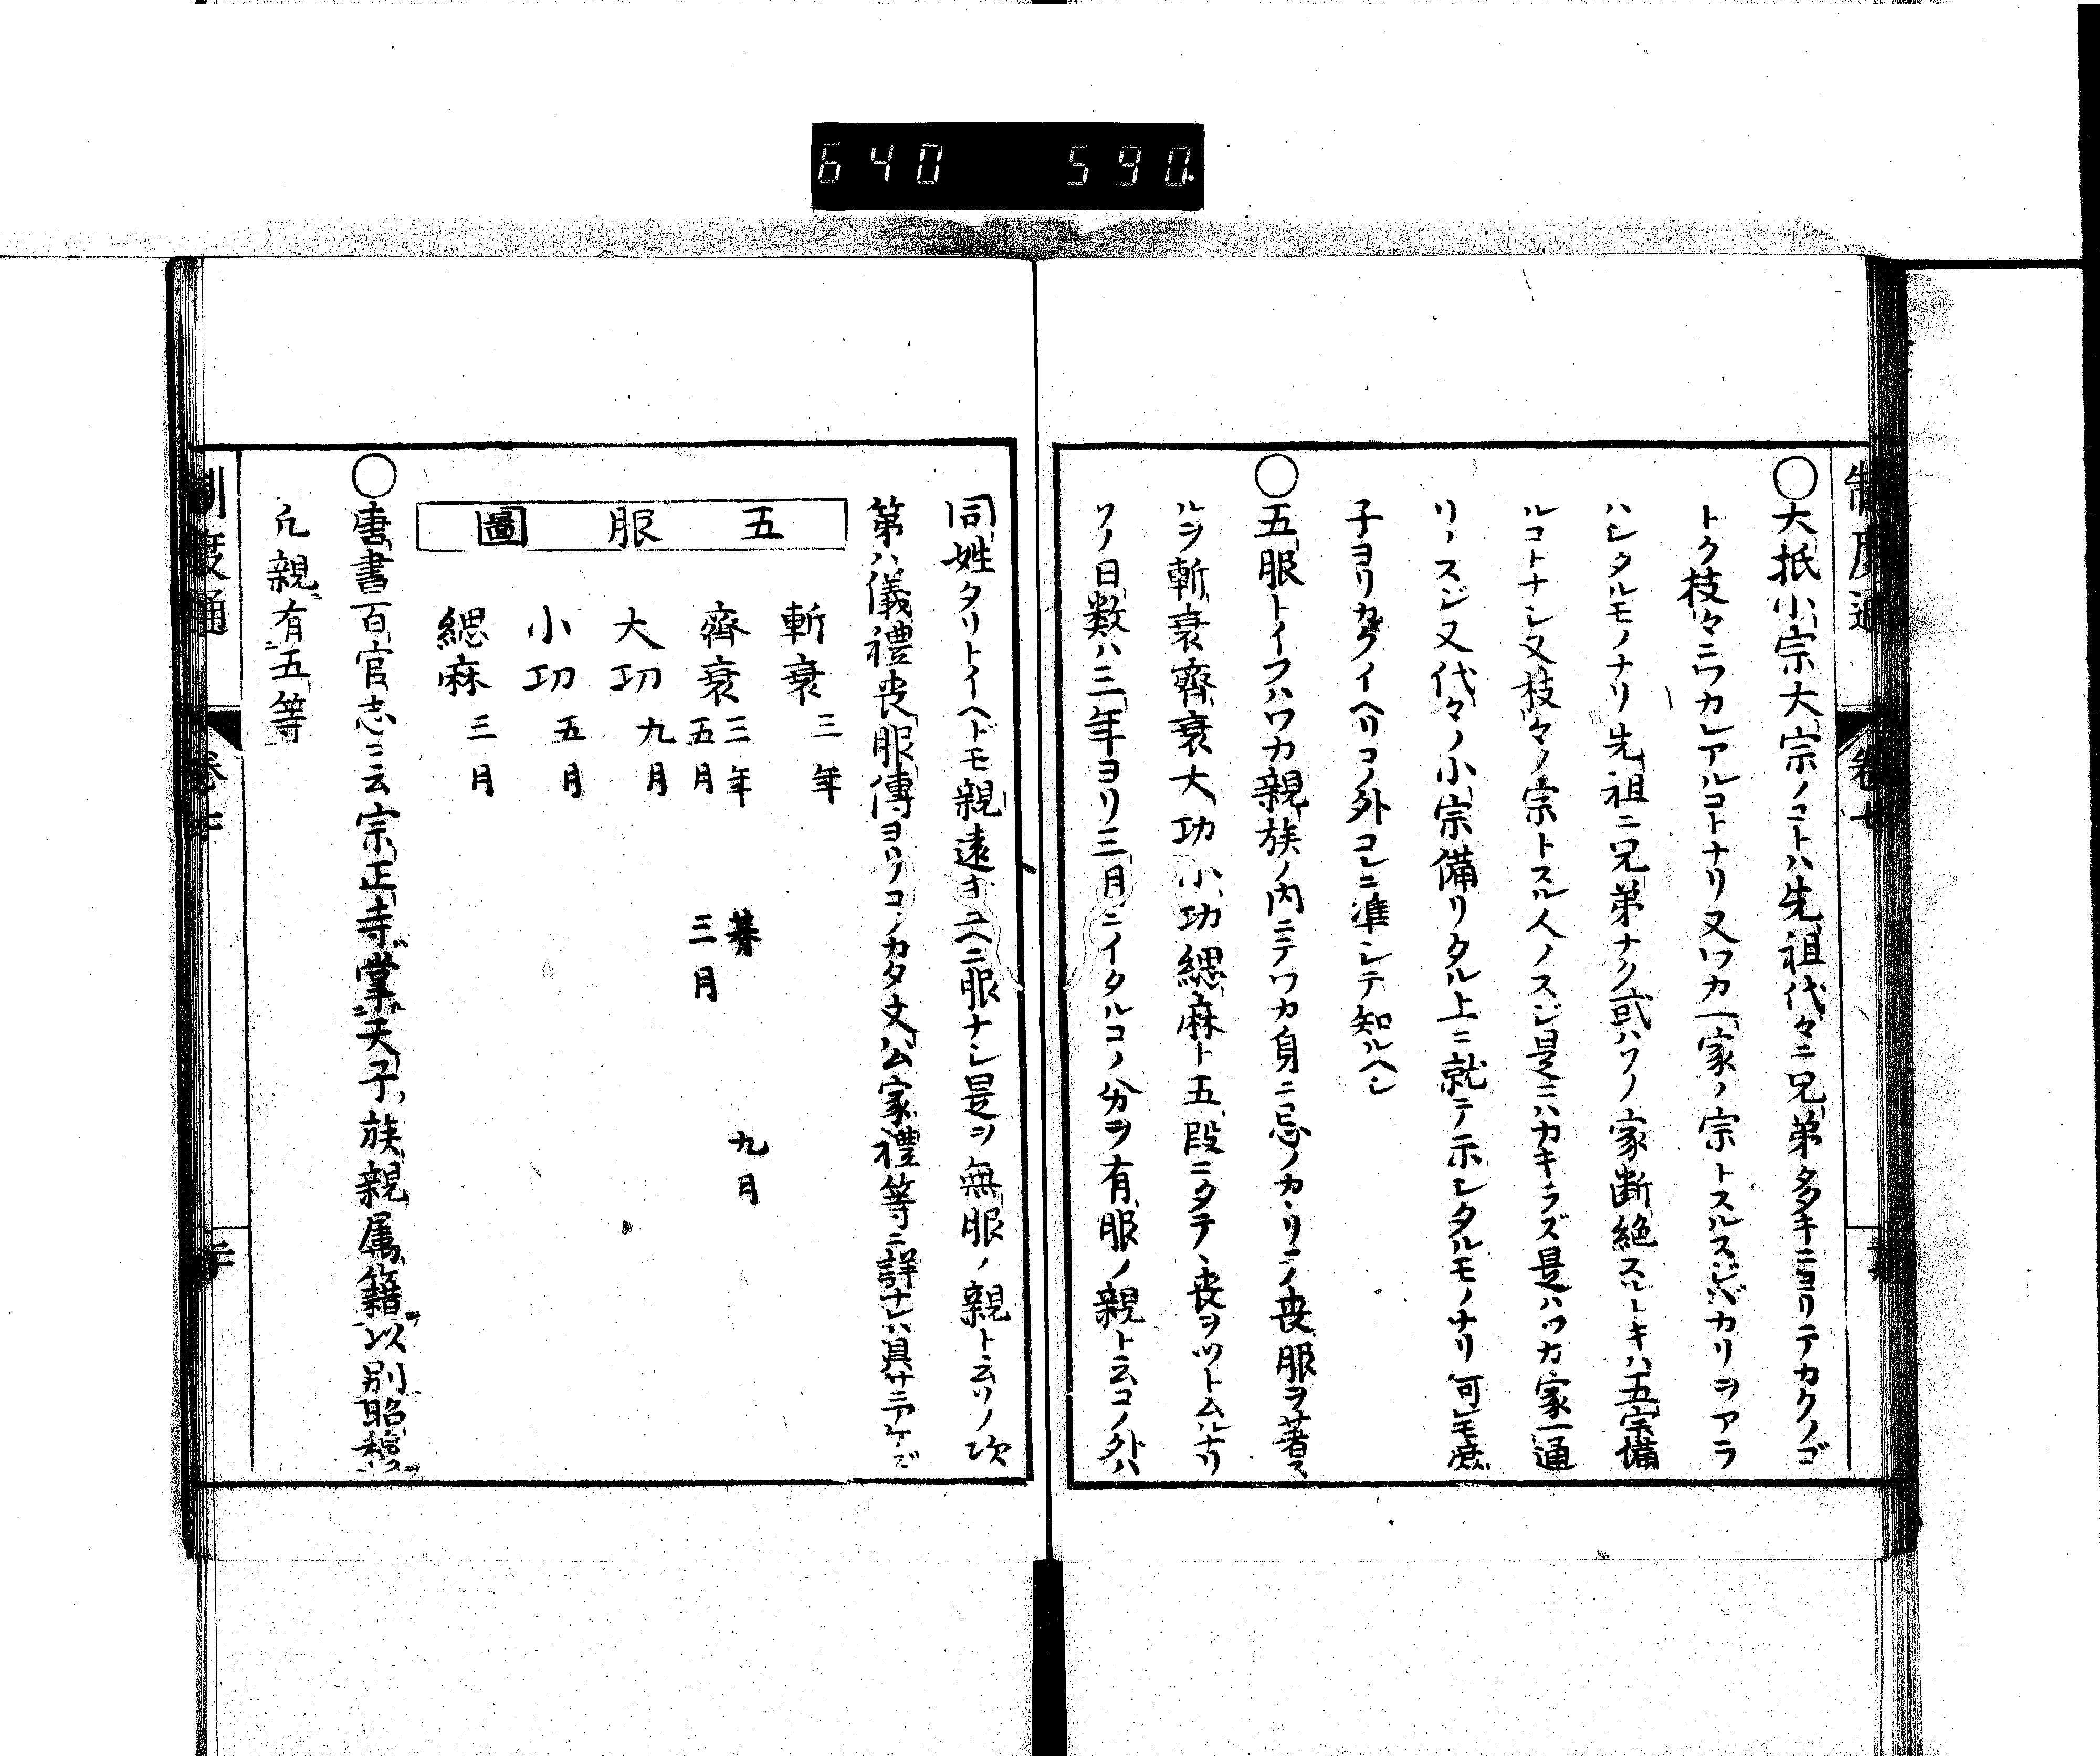 640 590.
制度通 卷七
○大抵小宗大宗ノコトハ先祖代々ニ兄弟多キニヨリテカクノゴ
トク枝々ニワカレアルコトナリ又ワカ一家ノ宗トスルスジバカリヲアラ
ハシタルモノナリ先祖ニ兄弟ナク或ハソノ家断絶スルトキハ五宗備
ルコトナシ又枝々ノ宗トスル人ノスジ是ニハカキラズ是ハワカ家一通
リノスジ又代々ノ小宗備リタル上ニ就テ示シタルモノナリ何モ庶
子ヨリカクイヘリコノ外コレニ準シテ知ルヘシ
○五服トイフハワカ親族ノ内ニテワカ身ニ忌ノカヽリテノ喪服ヲ著ス
ルヲ斬衰齊衰大功小功緦麻ト五段ニタテヽ喪ヲツトムルナリ
ソノ日数ハ三年ヨリ三月ニイタルコノ分ヲ有服ノ親ト云コノ外ハ
同姓タリトイヘドモ親遠キユヘニ服ナシ是ヲ無服ノ親ト云ソノ次
第ハ儀禮喪服傳ヨリコノカタ文公家禮等ニ詳ナレハ具サニアケズ
五服圖
斬衰 三年
齊衰 三年 朞 九月
五月 三月
大功 九月
小功 五月
緦麻 三月
○唐書百官志ニ云宗正寺掌天子族親屬籍以別昭穆
凡親有五等
制度通 卷七